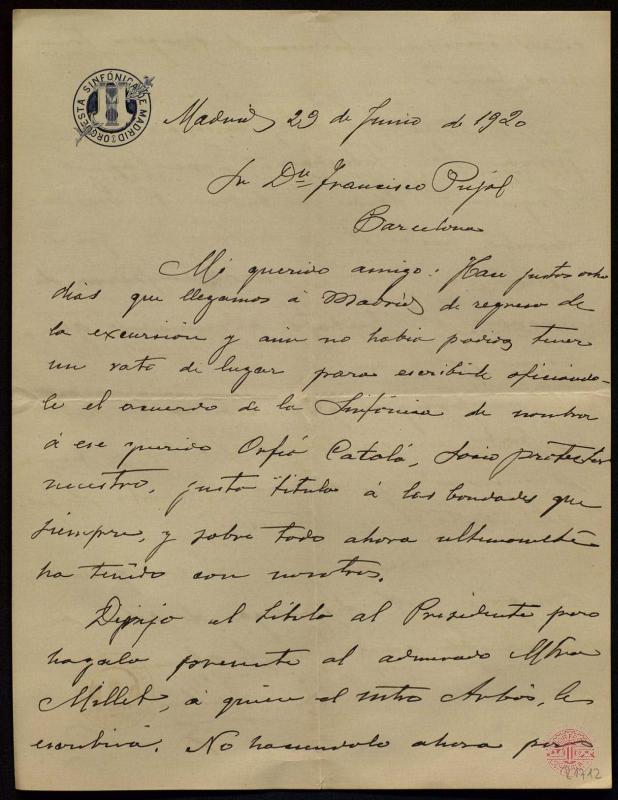 ORQUESTA SINFÓNICA DE MADRID
Madrid 29 de Junio de 1920
Sr Dn Francisco Pujól
Barcelona
Mi querido amigo: Hace justos ocho
dias que llegamos á Madrid de regreso de
la excursión y aún no habia podido tener
un rato de lugar para escribirle oficiando-
le el acuerdo de la Sinfónica de nombrar
á ese querido Orfeó Catalá, Socio protector
nuestro, justo titulo á las bondades que
siempre, y sobre todo ahora ultimamente
ha tenido con nosotros.
Dirijo el titulo al Presidente pero
hagalo presente al admirado Mtro
Millet, á quien el mtro Arbós, le
escribirá. No haciendolo ahora pero